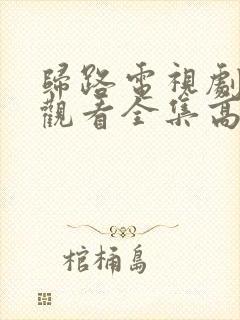 歸路電視劇
觀看全集高
棺桶島